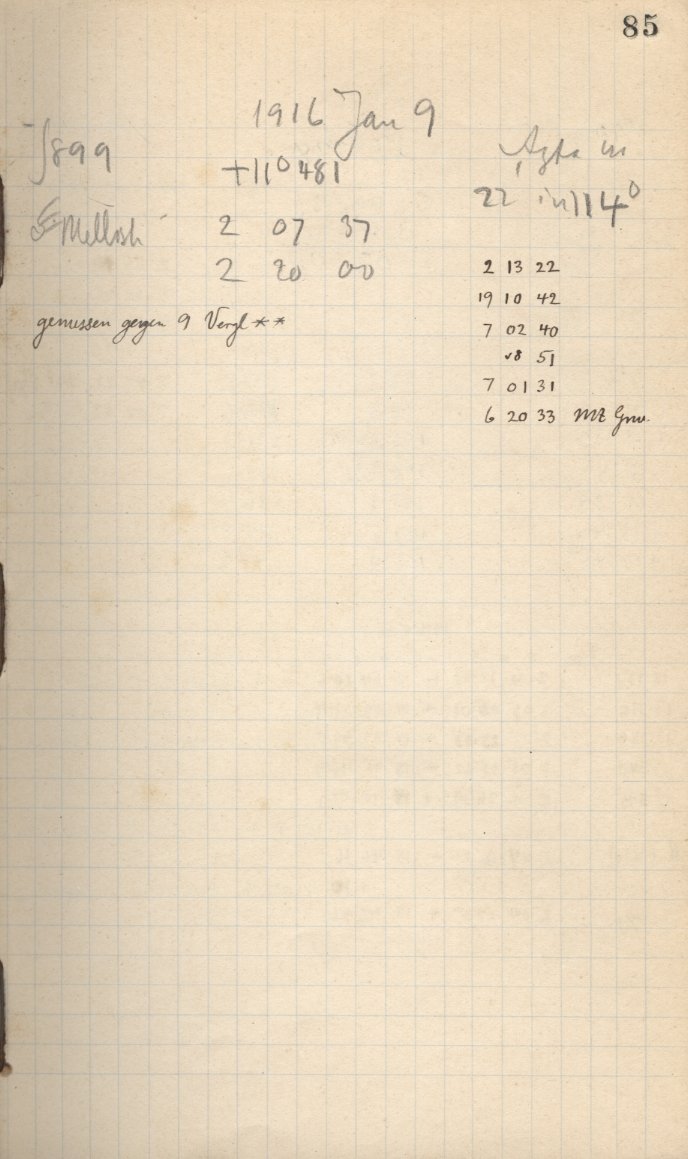 85
1916 Jan 9
899
+11° 48'
Mellosh
2 07 37
2 20 00
gemessen gegen 9 Vergl **
in
22 in 114°
2 13 22
19 10 42
7 02 40
51
7 01 31
6 20 33 MZ Grw.